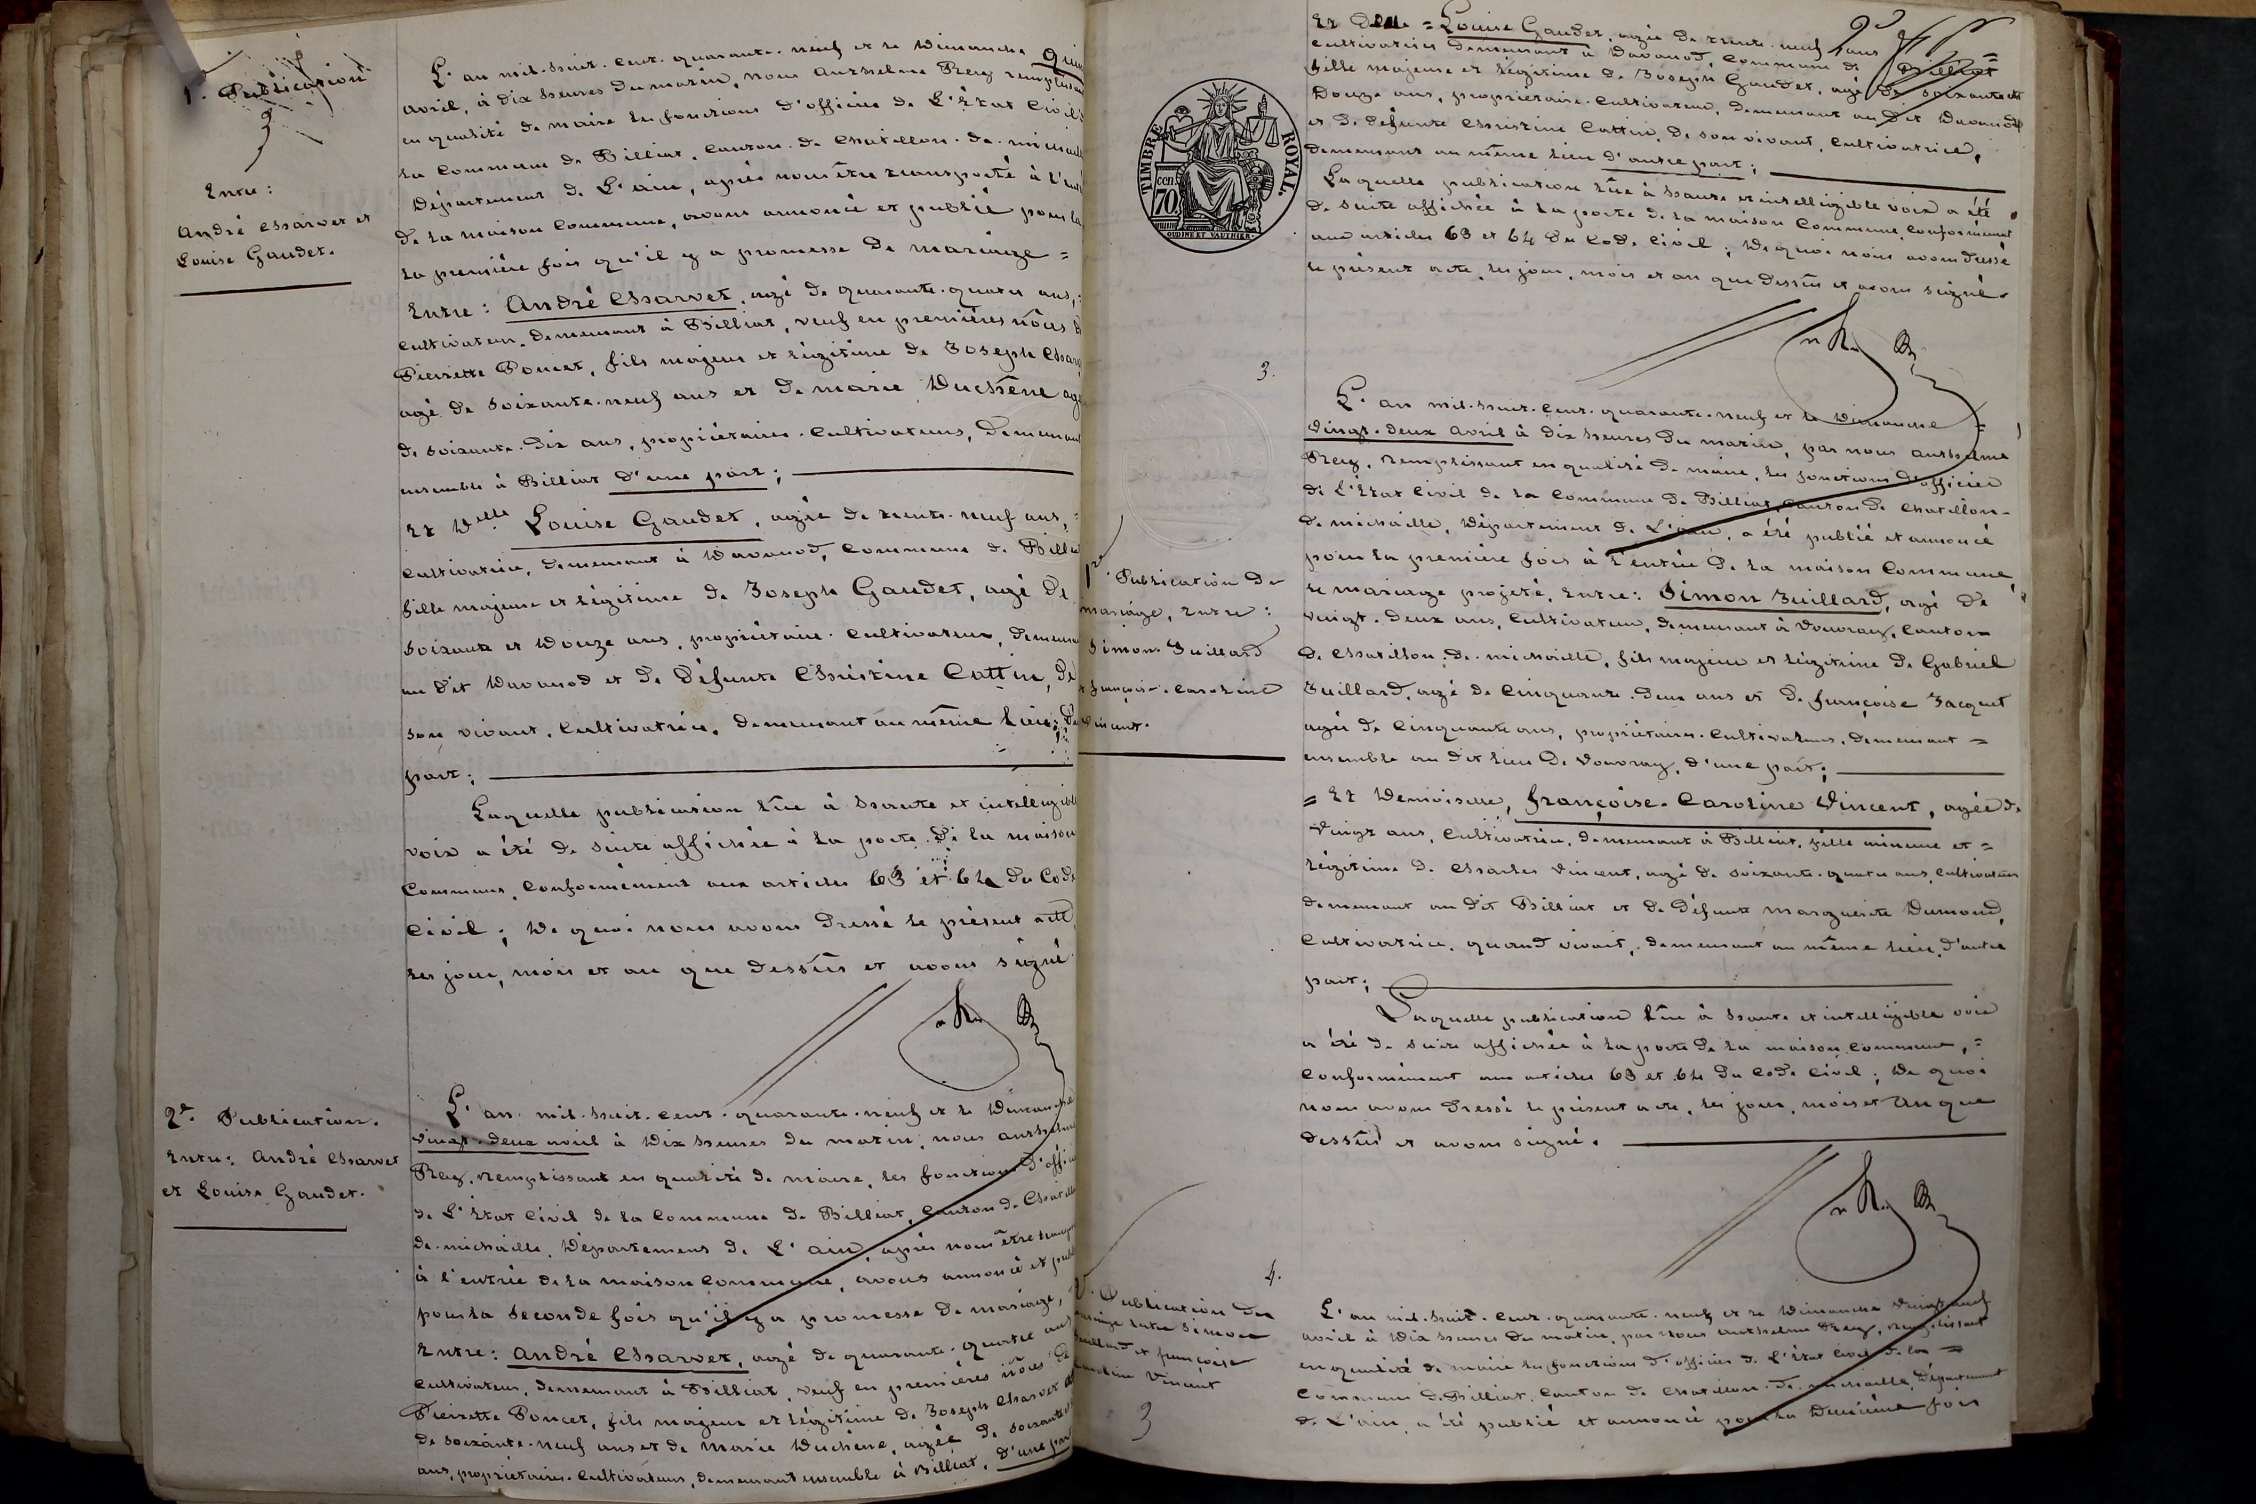 1re Publication
Entre:
André Charvet et
Louise Gaudet.
L'an mil-huit-cent-quarante-neuf et le Dimanche
avril, à dix heures du matin, nous Anthelme Rey
en qualité de maire les fonctions d'officier de L'État Civil
la Commune de Billiat, Canton de Chatillon-de-
Département de L'ain, après nous être transporté à
de la maison Commune, avons annoncé et publié pour la
la première fois qu'il y a promesse de mariage =
Entre: André Charvet, agé de quarante-quatre ans,
Cultivateur, demeurant à Billiat, veuf en premières nôces
Pierrette Poncet, fils majeur et légitime de Joseph
agé de soixante-neuf ans et de marie Duchêne
de soixante-dix ans, propriétaires-Cultivateurs,
ensemble à Billiat d'une part;
Et Delle Louise Gaudet, agée de trente-neuf ans,
Cultivatrice, demeurant à Davanod, Commune de
fille majeure et légitime de Joseph Gaudet, agé de
soixante et Douze ans, propriétaire-Cultivateur,
au dit Davanod et de Défunte Christine Cattin, de
son vivant, Cultivatrice, demeurant au même lieu,
part;
Laquelle publication lûe à haute et intelligible
voix a été de suite affichée à la porte de la maison
Commune, Conformément aux articles 63 et 64 du Code
Civil; De quoi nous avons dressé le présent acte
les jour, mois et an que dessûs et avons signé.
2e Publication.
Entre: André Charvet
et Louise Gaudet.
L'an mil-huit-cent-quarante-neuf et le Dimanche
vingt-deux avril à Dix heures du matin, nous
Rey, remplissant en qualité de maire, les fonctions
de L'État Civil de la Commune de Billiat, Canton de
de-michaille, Département de L'ain, après nous être
à l'entrée de la maison Commune, avons annoncé et
pour la seconde fois qu'il y a promesse de mariage,
Entre: André Charvet, agé de quarante-quatre ans
Cultivateur, demeurant à Billiat, veuf en premières nôces de
Pierrette Poncet, fils majeur et légitime de Joseph Charvet
de soixante-neuf ans et de Marie Duchêne, agée de
ans, propriétaires-Cultivateurs, demeurant ensemble à Billiat, d'une part
Et Delle = Louise Gaudet, agée de trente-neuf ans
Cultivatrice demeurant à Davanod, Commune de Billiat
fille majeure et légitime de Joseph Gaudet, agé de soixante et
Douze ans, propriétaire-Cultivateur, demeurant au dit Davanod
et de défunte Christine Cattin, de son vivant, Cultivatrice,
demeurant au même lieu d'autre part;
Laquelle publication lûe à haute et intelligible voix a été
de suite affichée à la porte de la maison Commune, Conformément
aux articles 63 et 64 du Code Civil; De quoi nous avons dressé
le présent acte, les jour, mois et an que dessûs et avons signé.
TIMBRE ROYAL
cen.
70
OUDINE ET VAUTHIER
3.
1re Publication de
mariage, entre:
Simon Juillard
et françoise-Caroline
Vincent.
L'an mil-huit-cent-quarante-neuf et le Dimanche =
Vingt-deux Avril à dix heures du matin, par nous Anthelme
Rey, remplissant en qualité de maire, les fonctions d'officier
de L'État Civil de la Commune de Billiat, Canton de Chatillon-
de-michaille, Département de L'ain, a été publié et annoncé
pour la première fois à l'entrée de la maison Commune
le mariage projeté, Entre: Simon Juillard, agé de
vingt-deux ans, Cultivateur, demeurant à Vouvray, Canton
de Chatillon-de-michaille, fils majeur et légitime de Gabriel
Juillard, agé de Cinquante-deux ans et de françoise Jacquet
agée de Cinquante ans, propriétaires-Cultivateurs, demeurant =
ensemble au dit lieu de Vouvray, d'une part;
= Et Demoiselle, françoise-Caroline Vincent, agée de
Vingt ans, Cultivatrice, demeurant à Billiat, fille mineure et =
légitime de Charles Vincent, agé de soixante-quatre ans, Cultivateur
demeurant au dit Billiat et de Défunte Marguerite Dumond,
Cultivatrice, quand vivait, demeurant au même lieu, d'autre
part;
Laquelle publication lûe à haute et intelligible voix
a été de suite affichée à la porte de la maison Commune, =
Conformément aux articles 63 et 64 du Code Civil; De quoi
nous avons dressé le présent acte, les jour, mois et An que
dessûs et avons signé.
4.
Publication de
mariage Entre Simon
Juillard et françoise
Caroline Vincent
3
L'an mil-huit-cent-quarante-neuf et le Dimanche Vingt-neuf
avril à Dix heures du matin, par nous Anthelme Rey, remplissant
en qualité de maire les fonctions d'officier de L'État Civil de la =
Commune de Billiat, Canton de Chatillon-de-michaille, Département
de L'ain, a été publié et annoncé pour la Deuxième fois